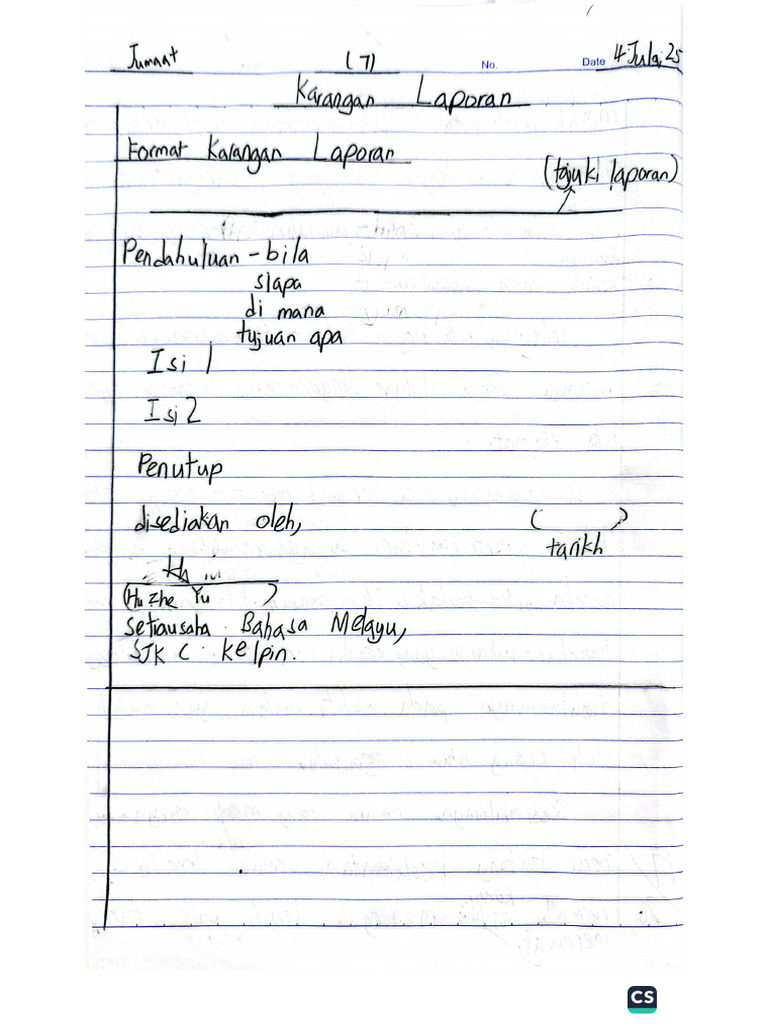 Jumaat (7) No. Date 4 Julai 25
Karangan Laporan
Format Karangan Laporan
(tajuk laporan)
Pendahuluan - bila
siapa
di mana
tujuan apa
Isi 1
Isi 2
Penutup
disediakan oleh, ( )
tarikh
(Hu Zhe Yu )
Setiausaha Bahasa Melayu,
SJK C kelpin.
CS